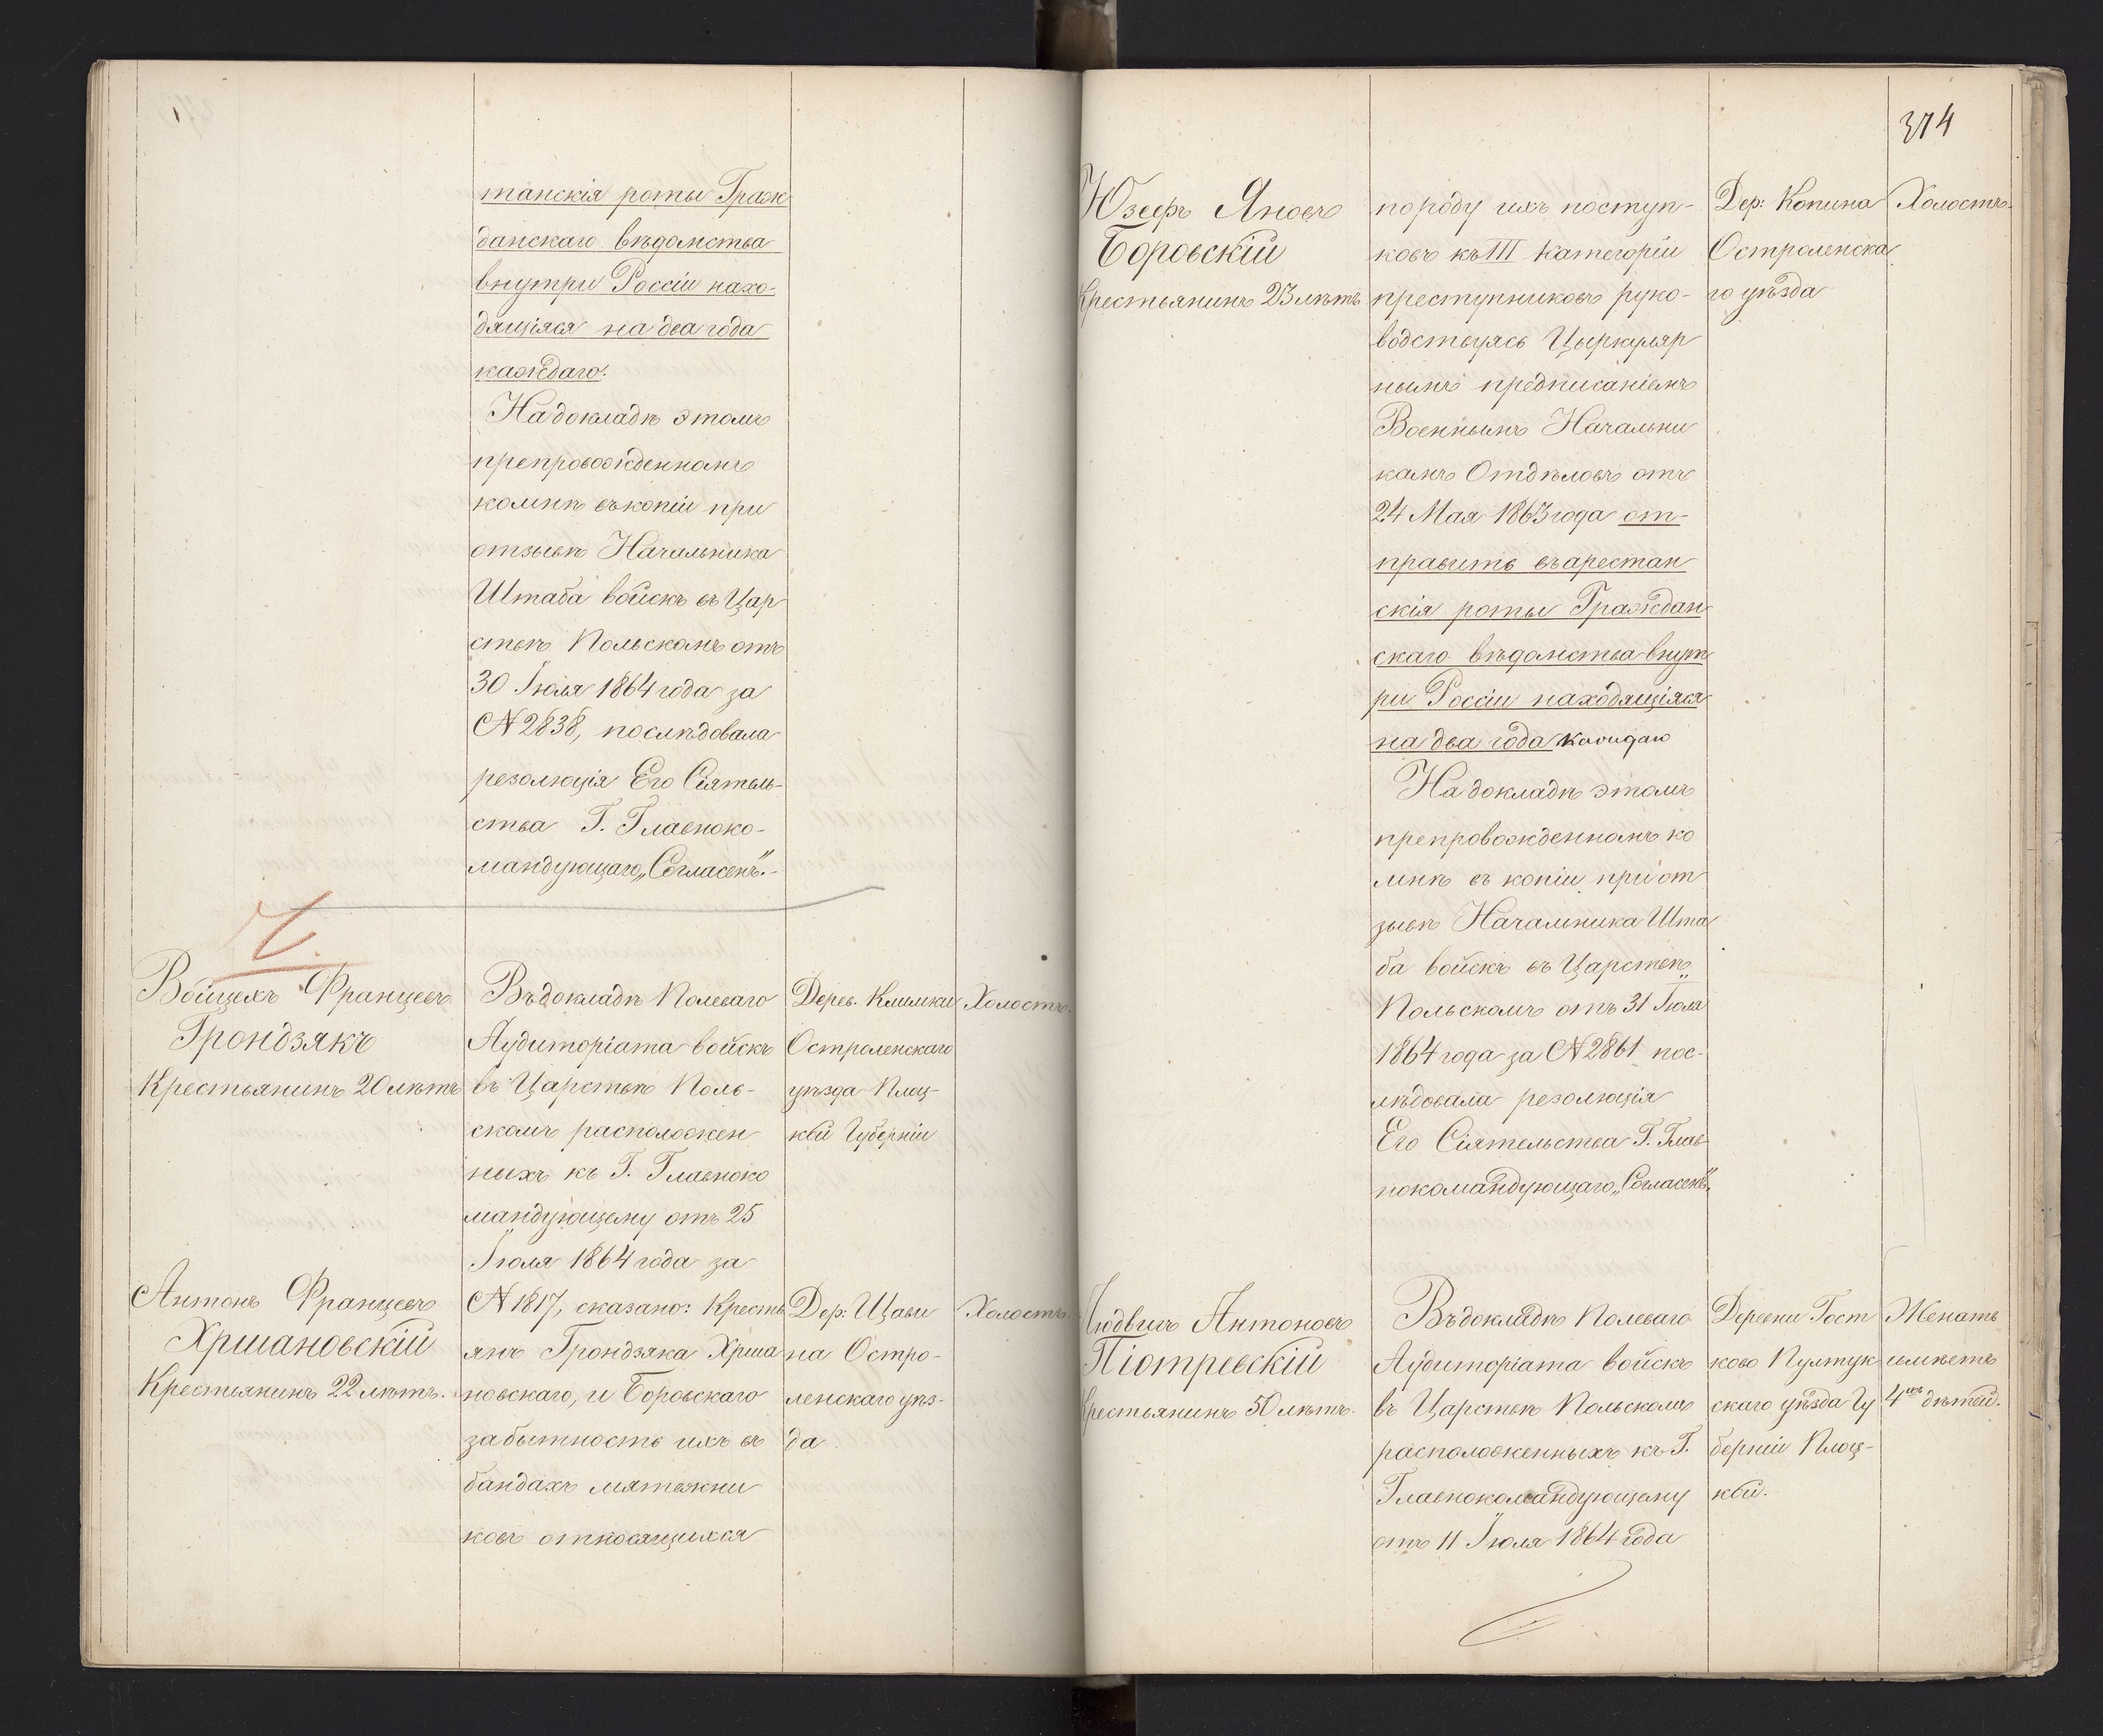 танскія роты Граж
данскаго вѣдомства
внутри Россіи нахо-
дящіяся на два года
каждаго.
На докладѣ этомъ
препровожденномъ
ко мнѣ въ копіи при
отзывѣ Начальника
Штаба войскъ въ Цар
ствѣ Польскомъ отъ
30 Іюля 1864 года за
№ 2838, послѣдовала
резолюція Его Сіятель-
ства Г. Главноко-
мандующаго „Согласенъ".-
Войцехъ Францевъ
Грондзякъ
Крестьянинъ 20 лѣтъ
Антонъ Францевъ
Хршановскій
Крестьянинъ 22 лѣтъ.
Въ докладѣ Полеваго
Аудиторіата войскъ
въ Царствѣ Поль-
скомъ расположен
ныхъ къ Г. Главноко
мандующему отъ 25
Іюля 1864 года за
№ 1817, сказано: Кресть
янъ Грондзяка Хрша
новскаго, и Боровскаго
за бытность ихъ въ
бандахъ мятежни
ковъ относящихся
Дерев. Климки
Остроленскаго
уѣзда Плоц-
кой Губерніи
Дер: Щави
на Остро-
ленскаго уѣз-
да
Холостъ.
Холостъ.
374
Юзефъ Яновъ
Боровскій
Крестьянинъ 23 лѣтъ
Людвигъ Антоновъ
Піотревскій
Крестьянинъ 50 лѣтъ.
по роду ихъ поступ-
ковъ къ III категоріи
преступниковъ руко-
водствуясь Цыркуляр
нымъ предписаніемъ
Военнымъ Начальни
камъ Отдѣловъ отъ
24 Мая 1863 года от-
править въ арестан
скія роты Граждан
скаго вѣдомства внут
ри Россіи находящіяся
на два года каждаго
На докладѣ этомъ
препровожденномъ ко
мнѣ въ копіи при от
зывѣ Начальника Шта
ба войскъ въ Царствѣ
Польскомъ отъ 31 Іюля
1864 года за № 2861 пос-
лѣдовала резолюція
Его Сіятельства Г. Глав-
нокомандующаго „Согласенъ".
Въ докладѣ Полеваго
Аудиторіата войскъ
въ Царствѣ Польскомъ
расположенныхъ къ Г.
Главнокомандующему
отъ 11 Іюля 1864 года
Дер: Копина
Остроленска
го уѣзда
Деревни Гост
ково Пултук
скаго уѣзда Гу
берніи Плоц-
кой.
Холостъ.
Женатъ
имѣетъ
4хъ дѣтей.